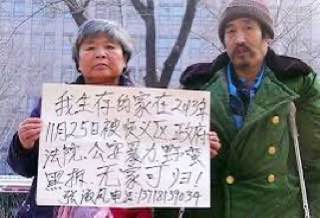 我生存的家在2013年
11月25日被安义区政府
法院.公安暴力.野蛮
黑拆 无家可归!
张淑凤电话13718139034